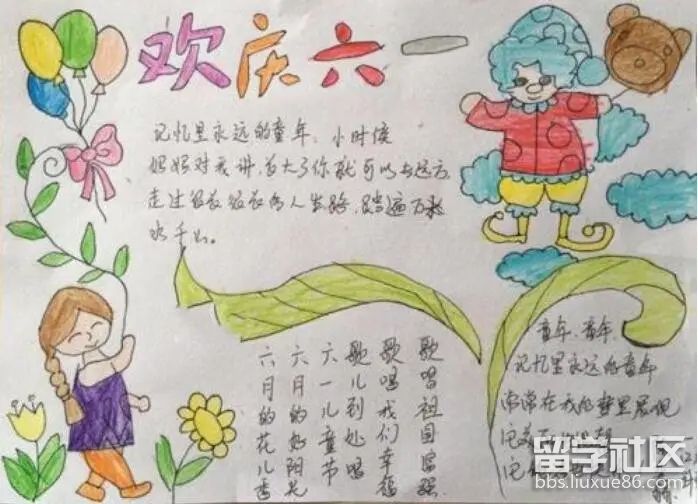 欢庆六一
记忆里永远的童年,小时候
妈妈对我讲,长大了你就可以去远方
走过很长很长的人生路,踏遍万
水千山。
六月的花儿香
六月的好阳光
六一儿童节
歌儿到处唱
歌唱我们幸福
歌唱祖国富强
童年,童年,
记忆里永远的童年
常常在我的梦里展现
它
它
留学社区
bbs.liuxue86.com